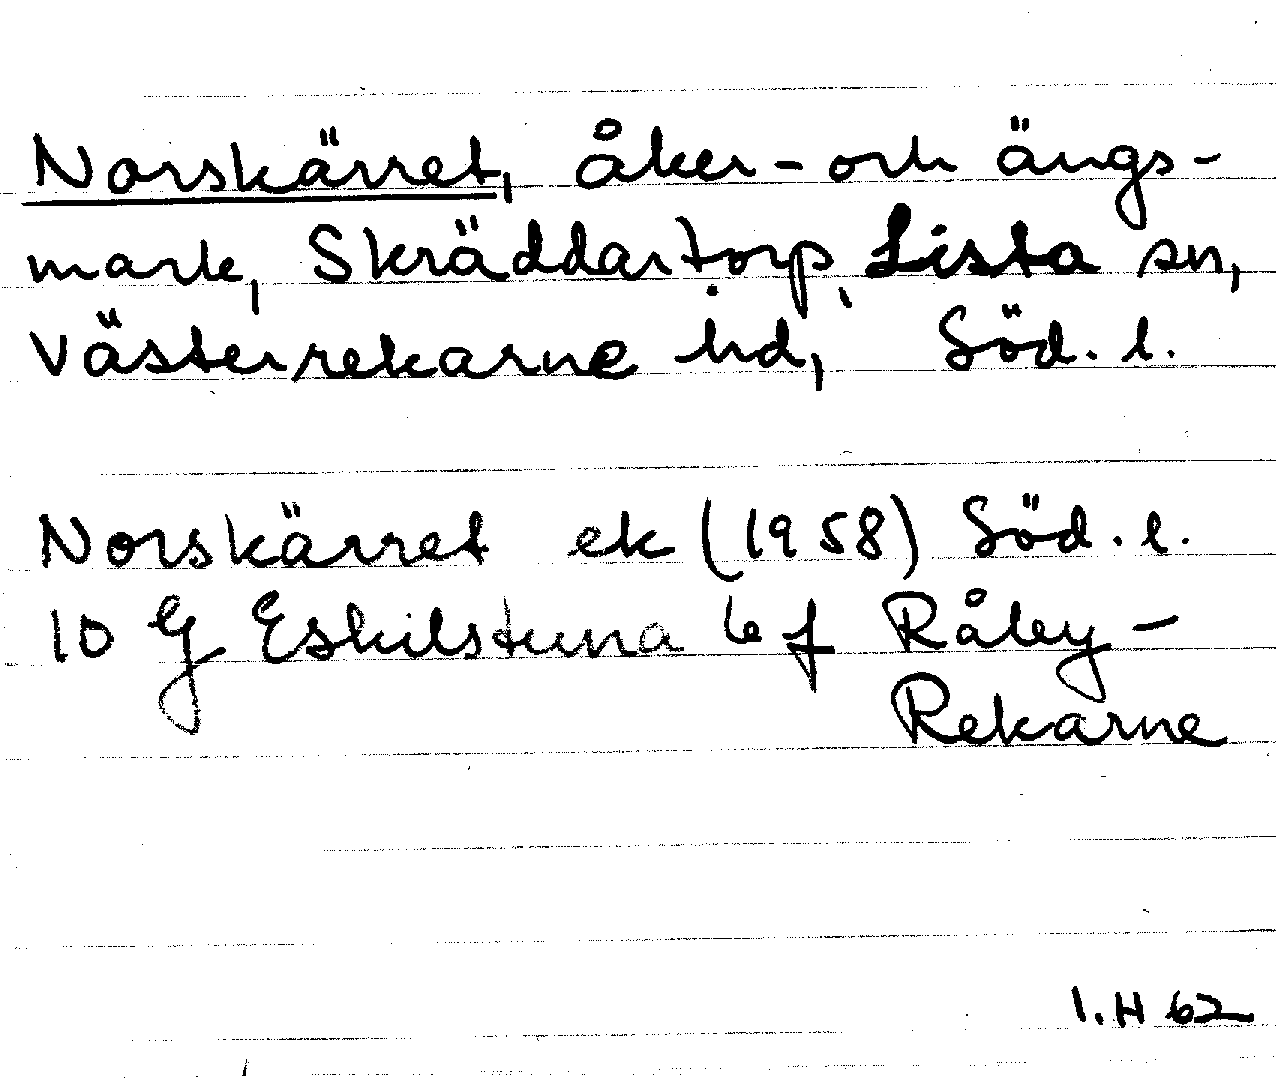 Norskärret, åker- och ängs-
mark, Skräddartorp, Lista sn,
Västerrekarne hd, Söd. l.
Norskärret ek (1958) Söd. l.
10 G Eskilstuna 6 f Råby-
Rekarne
I. H 62